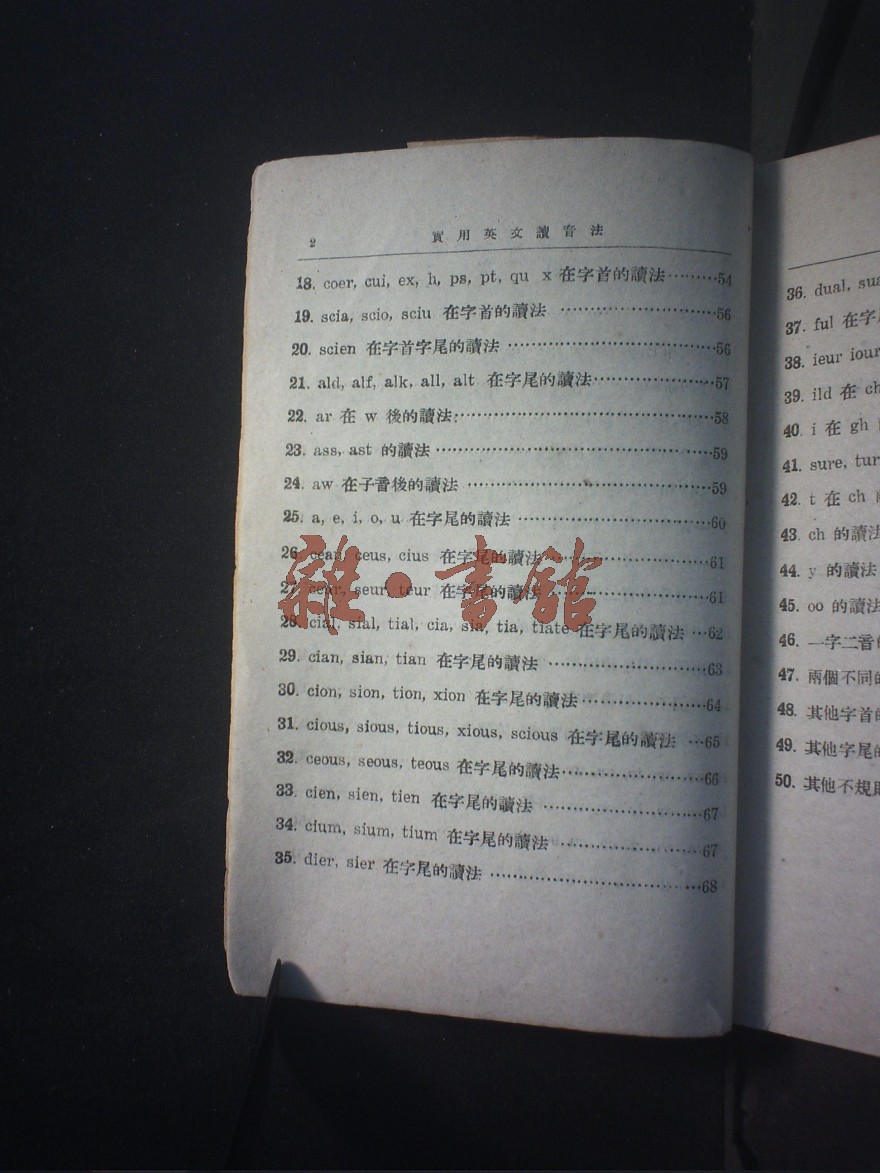 2 實用英文讀音法
18. coer, cui, ex, h, ps, pt, qu x 在字首的讀法·········54
19. scia, scio, sciu 在字首的讀法 ·······················56
20. scien 在字首字尾的讀法 ·······························56
21. ald, alf, alk, all, alt 在字尾的讀法·················57
22. ar 在 w 後的讀法·······································58
23. ass, ast 的讀法 ·········································59
24. aw 在子音後的讀法 ···································59
25. a, e, i, o, u 在字尾的讀法 ···························60
26. cean, ceus, cius 在字尾的讀法·······················61
27. cear, seur, teur 在字尾的讀法 ·······················61
28. cial, sial, tial, cia, sia, tia, tiate 在字尾的讀法 ···62
29. cian, sian, tian 在字尾的讀法 ·······················63
30. cion, sion, tion, xion 在字尾的讀法·················64
31. cious, sious, tious, xious, scious 在字尾的讀法 ···65
32. ceous, seous, teous 在字尾的讀法···················66
33. cien, sien, tien 在字尾的讀法 ·······················67
34. cium, sium, tium 在字尾的讀法 ·····················67
35. dier, sier 在字尾的讀法 ·······························68
雜·書館
36. dual, sua
37. ful 在字
38. ieur iour
39. ild 在 ch
40. i 在 gh
41. sure, tur
42. t 在 ch
43. ch 的讀法
44. y 的讀法
45. oo 的讀法
46. 一字二音
47. 兩個不同的
48. 其他字首的
49. 其他字尾的
50. 其他不規則